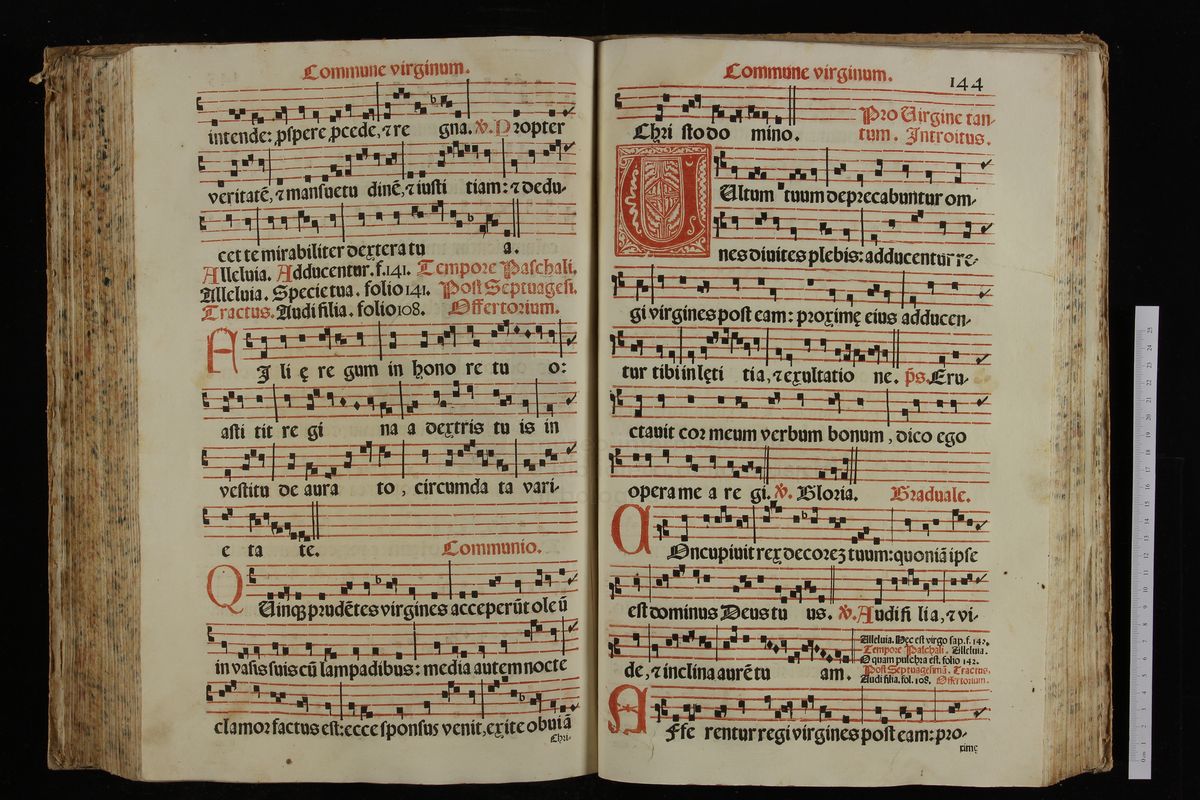 Commune virginum.
intende: ꝓspere ꝓcede, ⁊ re gna. ℣. Propter
veritatē, ⁊ mansuetu dinē, ⁊ iusti tiam: ⁊ dedu-
cet te mirabiliter dextera tu a.
Alleluia. Adducentur. f. 141. Tempore Paschali.
Alleluia. Specie tua. folio 141. Post Septuagesi.
Tractus. Audi filia. folio 108. Offertorium.
FI li ę re gum in hono re tu o:
asti tit re gi na a dextris tu is in
vestitu de aura to, circumda ta vari-
e ta te. Communio.
QUinqꝫ prudētes virgines acceperūt oleū
in vasis suis cū lampadibus: media autem nocte
clamor factus est: ecce sponsus venit, exite obuiā
Chri-
Commune virginum. 144
Chri sto do mino. Pro Virgine tan-
tum. Introitus.
VUltum tuum deprecabuntur om-
nes diuites plebis: adducentur re-
gi virgines post eam: proximę eius adducen-
tur tibi in lęti tia, ⁊ exultatio ne. p̄s. Eru-
ctauit cor meum verbum bonum, dico ego
opera me a re gi. ℣. Gloria. Graduale.
COncupiuit rex decoreꝫ tuum: quoniā ipse
est dominus Deus tu us. ℣. Audi fi lia, ⁊ vi-
de, ⁊ inclina aurē tu am.
Alleluia. Hec est virgo sap. f. 142.
Tempore Paschali. Alleluia.
O quam pulchra est. folio 142.
Post Septuagesimā. Tractus.
Audi filia. fol. 108. Offertorium.
AFfe rentur regi virgines post eam: pro-
ximę